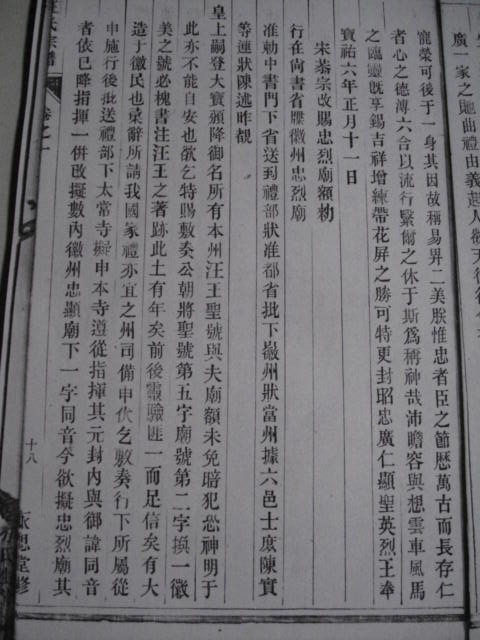 廣一家之
寵榮可後于一身其因故稱易界二美朕惟忠者臣之節歷萬古而長存仁
者心之德溥六合以流行繄爾之休于斯爲稱神哉沛瞻容與想雲車風馬
之臨孁旣享錫吉祥增練帶花屏之勝可特更封昭忠廣仁顯聖英烈王奉
寶祐六年正月十一日
宋恭宗改賜忠烈廟額勑
行在尚書省牒徽州忠烈廟
准勅中書門下省送到禮部狀准都省批下徽州狀當州據六邑士庶陳實
等連狀陳述昨覩
皇上嗣登大寶頒降御名所有本州汪王聖號與夫廟額未免暗犯恐神明于
此亦不能自安也欲乞特賜敷奏公朝將聖號第五字廟號第二字換一徽
美之號必槐書注汪王之著跡此土有年矣前後靈驗匪一而足信矣有大
造于徽民也彔辭所請我國家禮亦宜之州司備申伏乞敷奏行下所屬從
申施行後批送禮部下太常寺擬申本寺遵從指揮其元封內與御諱同音
者依已降指揮一併改擬數內徽州忠顯廟下一字同音今欲擬忠烈廟其
氏宗譜
卷之一
十八
永思堂修